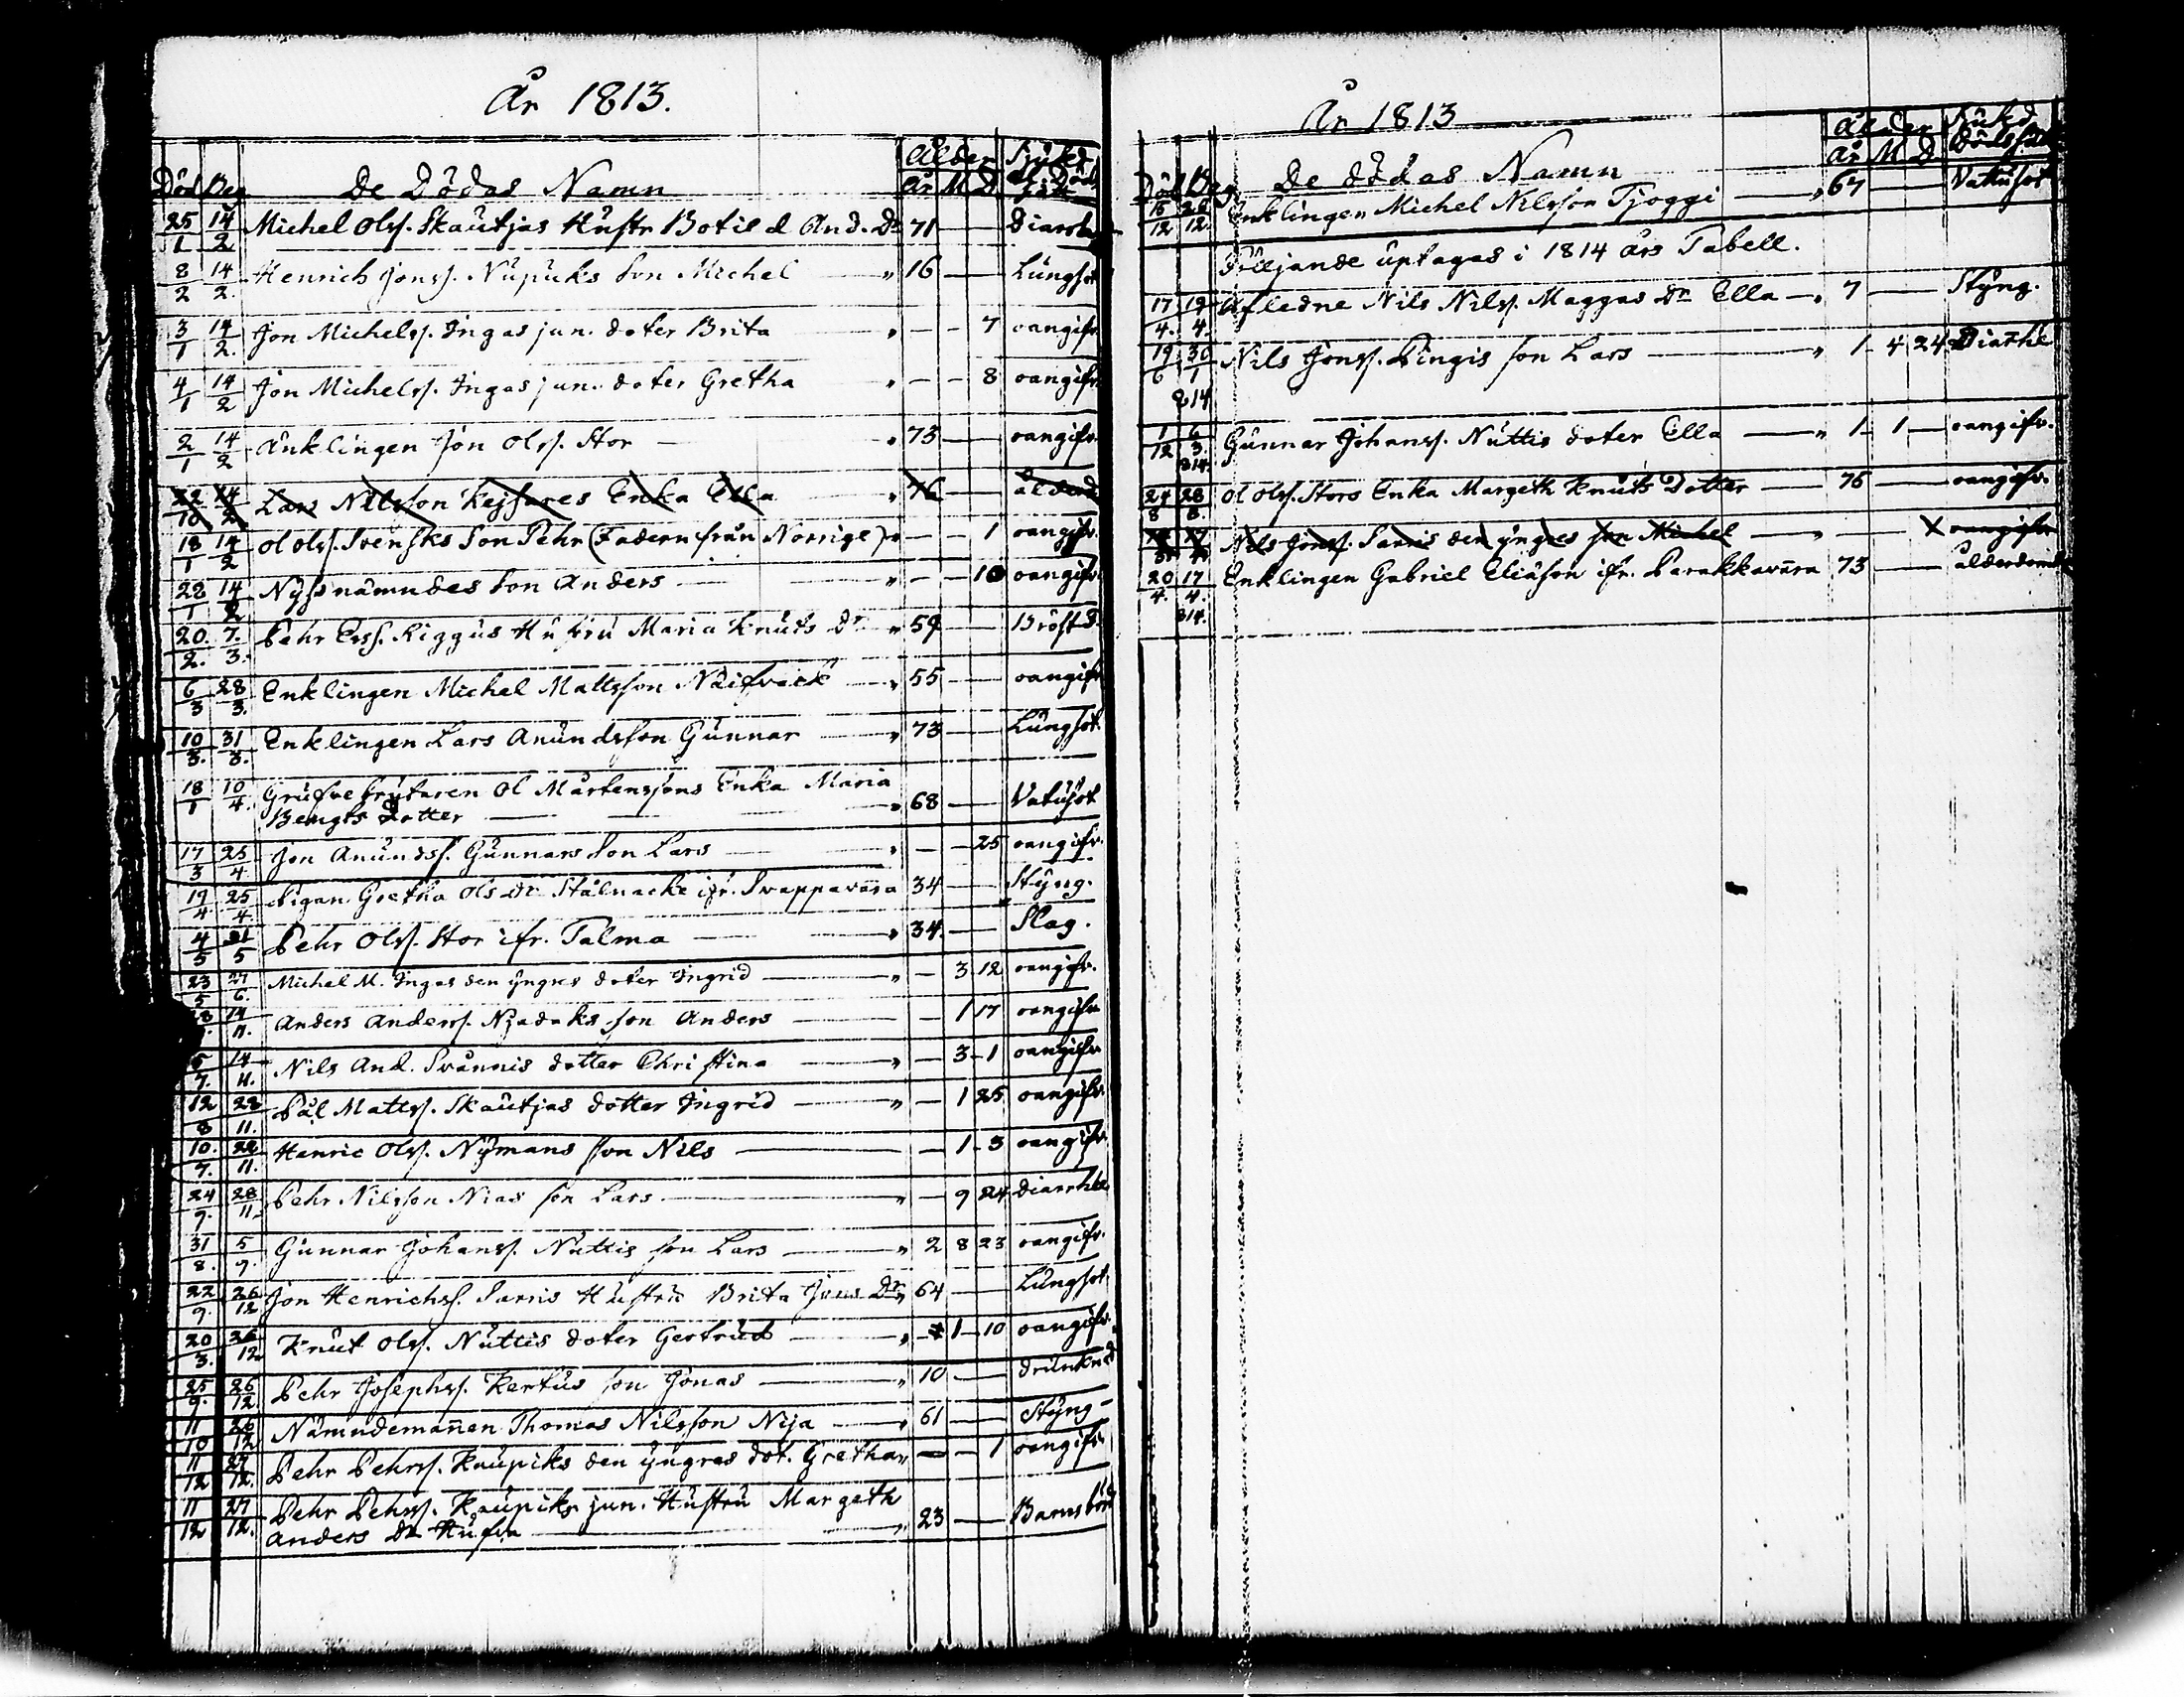 År 1813.
Död Beg De Dödas Namn Ålder År M D Sjukd.
25/1 14/2 Michel Olss. Skautjas Hustr Botild And. Dr 71 — — Diarrh
8/2 14/2. Henrich Jonss. Nupuks Son Michel — " 16 — Lungsot
3/1 14/2. Jon Michelss. Ingas jun. doter Brita " — — 7 oangifv.
4/1 14/2 Jon Michelss. Ingas jun. doter Gretha " — — 8 oangifv.
2/1 14/2 Änklingen Jon Olss. Stor — " 73 — oangifv.
22/10 14/2 Lars Nilsson Kejsares Enka Ella " 76 — ålderd
18/1 14/2 Ol Olss. Svensks Son Pehr (Fadern från Norrige) " — — 1 oangifv.
28/1 14/2 Nyssnämndes Son Anders — " — — 10 oangifv.
20/2. 7./3. Pehr Erss. Riggus Hustru Maria Knuts Dr " 59 — Bröst S.
6/3 28/3. Enklingen Michel Mattsson — " 55 — oangifv
10/3. 31/3. Enklingen Lars Anundsson Gunnar — " 73 — Lungsot.
18/1 10/4. Grufvebrytaren Ol Mårtenssons Enka Maria
Bengts Dotter — — " 68 — Vatusot
17/3 25/4. Jon Anundss. Gunnars Son Lars — " — — 25 oangifv.
19/4 25/4. Pigan Gretha Ols Dr Stålnacke ifr. Svappavara 34 — Styng.
4/5 21/5 Pehr Olss. Stor ifr. Talma — " 34. — Slag.
23/5 27/6. Michel M. Ingas den yngres doter Ingrid — " — 3 12 oangifv.
Anders Anderss. Njadaks son Anders — — 1 17 oangifv
5/7. 14/11. Nils And. Svännis dotter Christina — " — 3 — 1 oangifv.
12/8 28/11. Pål Matts. Skautjas dotter Ingrid — " — 1 25 oangifv.
10./7. 28/11. Henric Olss. Nymans son Nils — — 1 - 3 oangifv.
24/9. 28/11. Pehr Nilsson Nias son Lars — " — 9 24 diarrhée.
31/8. 5/9. Gunnar Johanss. Nuttis son Lars — " 2 8 23 oangifv.
22/9. 26/12 Jon Henrichss. Sarris Hustru Brita Jons Dr " 64 — Lungsot.
20/3. 26/12 Knut Olss. Nuttis doter Gertrud — " — 1 — 10 oangifv.
25/9. 26/12. Pehr Josephss. Kertus son Jonas — " 10 — drunknad
11/10 26/12 Nämndemannen Thomas Nilsson Nija — " 61 — Styng —
11/12 27/12. Pehr Pehrss. Knupiks den yngres dot. Gretha " — — 1 oangifv.
11/12 27/12. Pehr Pehrss. Knupiks jun. Hustru Margeth
Anders Dr — " 23 — Barnsbörd
År 1813
Död Beg De dödas Namn Ålder År M D Sjukd.
15/12 26/12. Enklingen Michel Nilsson Tjoggi — " 67 — Vatusot
Följande uptagas i 1814 års Tabell.
17/4. 19/4. Afledne Nils Nilss. Maggas Dr Ella — " 7 — Styng.
19/6 30/1 814 Nils Jonss. Pingis son Lars — " 1 - 4 24 Diarhé
1/12 6/3. 814. Gunnar Johanss. Nuttis doter Ella — " 1 - 1 — oangifv.
24/8 28/8. Ol Olss. Stors Enka Margeth Knuts Dotter — 76 — oangifv.
Nils Jonss. Sarris den yngres son Michel — " — X oangifv
20/4. 17/4. 814. Enklingen Gabriel Eliasson ifr. Parakkavara 73 — ålderdom